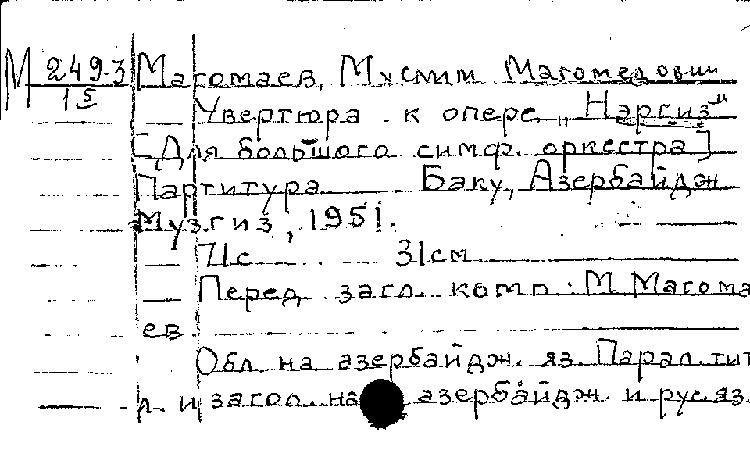 М 249.3 Магомаев, Муслим Магомедович
15 Увертюра к опере „Наргиз"
[Для большого симф. оркестра]
Партитура Баку, Азербайдж.
Музгиз, 1951.
71с. 31см
Перед загл. комп: М. Магома
ев
Обл. на азербайдж. яз. Парал. тит.
л. и загол. на азербайдж. и рус. яз.